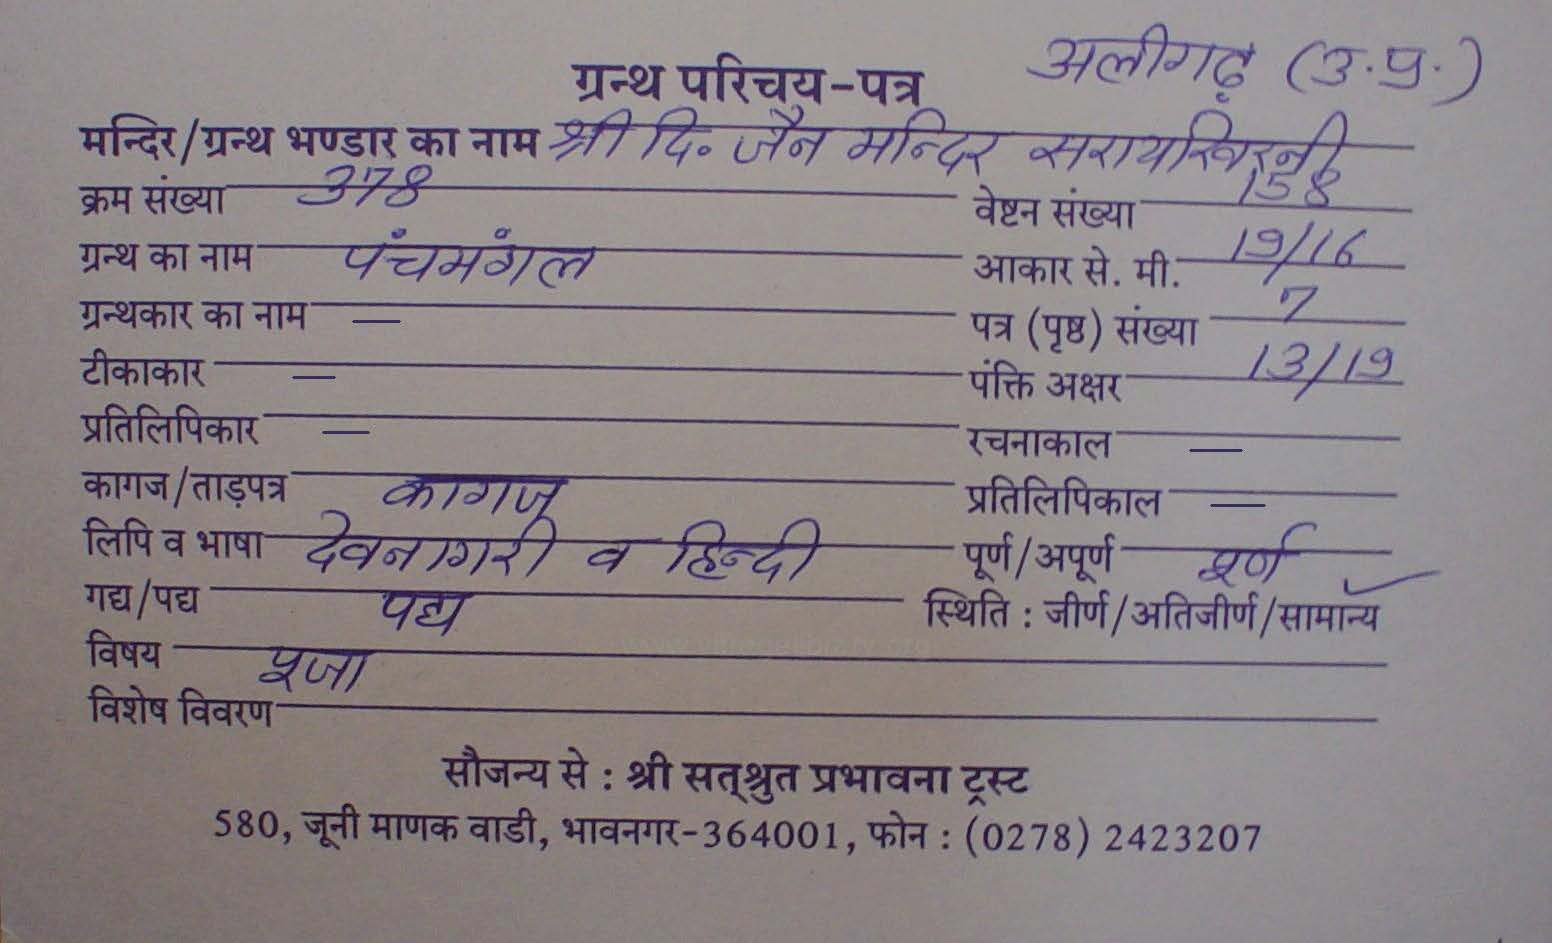 अलीगढ़ (उ.प्र.)
ग्रन्थ परिचय-पत्र
मन्दिर/ग्रन्थ भण्डार का नाम श्री दि॰ जैन मन्दिर सरायखिरनी
क्रम संख्या 378 वेष्टन संख्या 158
ग्रन्थ का नाम पंचमंगल आकार से. मी. 19/16
ग्रन्थकार का नाम — पत्र (पृष्ठ) संख्या 7
टीकाकार — पंक्ति अक्षर 13/19
प्रतिलिपिकार — रचनाकाल —
कागज/ताड़पत्र कागज प्रतिलिपिकाल —
लिपि व भाषा देवनागरी व हिन्दी पूर्ण/अपूर्ण पूर्ण
गद्य/पद्य पद्य स्थिति : जीर्ण/अतिजीर्ण/सामान्य ✓
विषय पूजा
विशेष विवरण
सौजन्य से : श्री सत्श्रुत प्रभावना ट्रस्ट
580, जूनी माणक वाडी, भावनगर-364001, फोन : (0278) 2423207